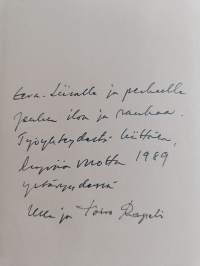 Eeva-Liisalle ja perheelle
joulun iloa ja rauhaa.
Työyhteydestä kiittäen,
hyvää vuotta 1989
ystävyydessä
Ulla ja Toivo Rapeli